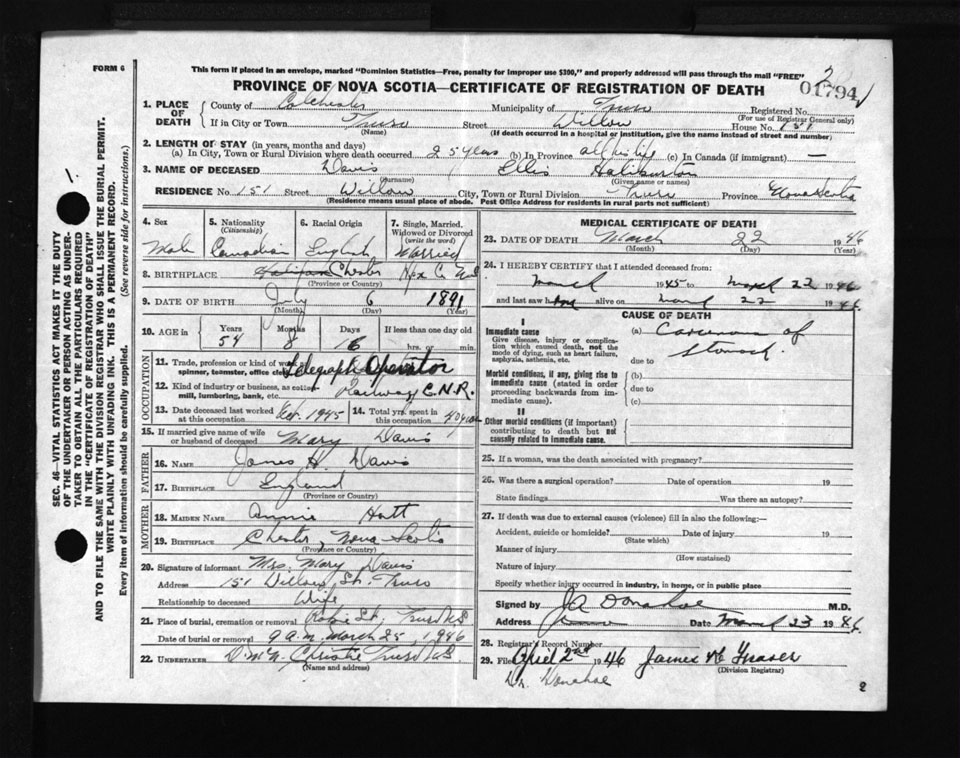 FORM 6
This form if placed in an envelope, marked "Dominion Statistics—Free, penalty for improper use $300," and properly addressed will pass through the mail "FREE"
2
PROVINCE OF NOVA SCOTIA—CERTIFICATE OF REGISTRATION OF DEATH
01794
1. PLACE OF DEATH
County of Colchester Municipality of Truro Registered No.
(For use of Registrar General only)
If in City or Town Truro Street Willow House No. 151
(Name) (If death occurred in a hospital or institution, give the name instead of street and number)
2. LENGTH OF STAY (in years, months and days)
(a) In City, Town or Rural Division where death occurred 25 years (b) In Province all his life (c) In Canada (if immigrant) —
3. NAME OF DECEASED Davis Ellis Haliburton
(Surname) (Given name or names)
RESIDENCE No. 151 Street Willow City, Town or Rural Division Truro Province Nova Scotia
(Residence means usual place of abode. Post Office Address for residents in rural parts not sufficient)
4. Sex 5. Nationality (Citizenship) 6. Racial Origin 7. Single, Married, Widowed or Divorced (write the word)
Male Canadian English Married
8. BIRTHPLACE Halifax Chester
(Province or County)
9. DATE OF BIRTH July 6 1891
(Month) (Day) (Year)
10. AGE in Years Months Days If less than one day old
54 8 16 hrs. or min.
OCCUPATION
11. Trade, profession or kind of work as spinner, teamster, office clerk Telegraph Operator
12. Kind of industry or business, as cotton mill, lumbering, bank, etc. Railway C.N.R.
13. Date deceased last worked at this occupation 1945 14. Total yrs. spent in this occupation 40 years
15. If married give name of wife or husband of deceased Mary Davis
FATHER
16. NAME James H. Davis
17. BIRTHPLACE England
(Province or Country)
MOTHER
18. MAIDEN NAME Annie Hatt
19. BIRTHPLACE Chester, Nova Scotia
(Province or Country)
20. Signature of informant Mrs. Mary Davis
Address 151 Willow St. Truro
Relationship to deceased Wife
21. Place of burial, cremation or removal Robie St., Truro NS
Date of burial or removal 9 a.m. March 25, 1946
22. UNDERTAKER Christie Truro N.S.
(Name and address)
MEDICAL CERTIFICATE OF DEATH
23. DATE OF DEATH March 22 1946
(Month) (Day)
24. I HEREBY CERTIFY that I attended deceased from:
March 1945 to March 22 1946
and last saw him alive on March 22 1946
CAUSE OF DEATH
I
Immediate cause
Give disease, injury or complication which caused death, not the mode of dying, such as heart failure, asphyxia, asthenia, etc.
(a) Carcinoma of
due to Stomach.
Morbid conditions, if any, giving rise to immediate cause (stated in order proceeding backwards from immediate cause).
(b)
due to
(c)
II
Other morbid conditions (if important) contributing to death but not causally related to immediate cause.
25. If a woman, was the death associated with pregnancy?
26. Was there a surgical operation? Date of operation 19
State findings Was there an autopsy?
27. If death was due to external causes (violence) fill in also the following:—
Accident, suicide or homicide? Date of injury 19
(State which)
Manner of injury
(How sustained)
Nature of injury
Specify whether injury occurred in industry, in home, or in public place
Signed by JA Donahoe M.D.
Address Truro Date March 23 1946
28. Registrar's Record Number
29. Filed April 2nd 1946 James
(Division Registrar)
Dr. Donahoe
2
SEC. 46—VITAL STATISTICS ACT MAKES IT THE DUTY
OF THE UNDERTAKER OR PERSON ACTING AS UNDER-
TAKER TO OBTAIN ALL THE PARTICULARS REQUIRED
IN THE "CERTIFICATE OF REGISTRATION OF DEATH"
AND TO FILE THE SAME WITH THE DIVISION REGISTRAR WHO SHALL ISSUE THE BURIAL PERMIT.
WRITE PLAINLY WITH UNFADING INK. THIS IS A PERMANENT RECORD.
Every item of information should be carefully supplied. (See reverse side for instructions.)